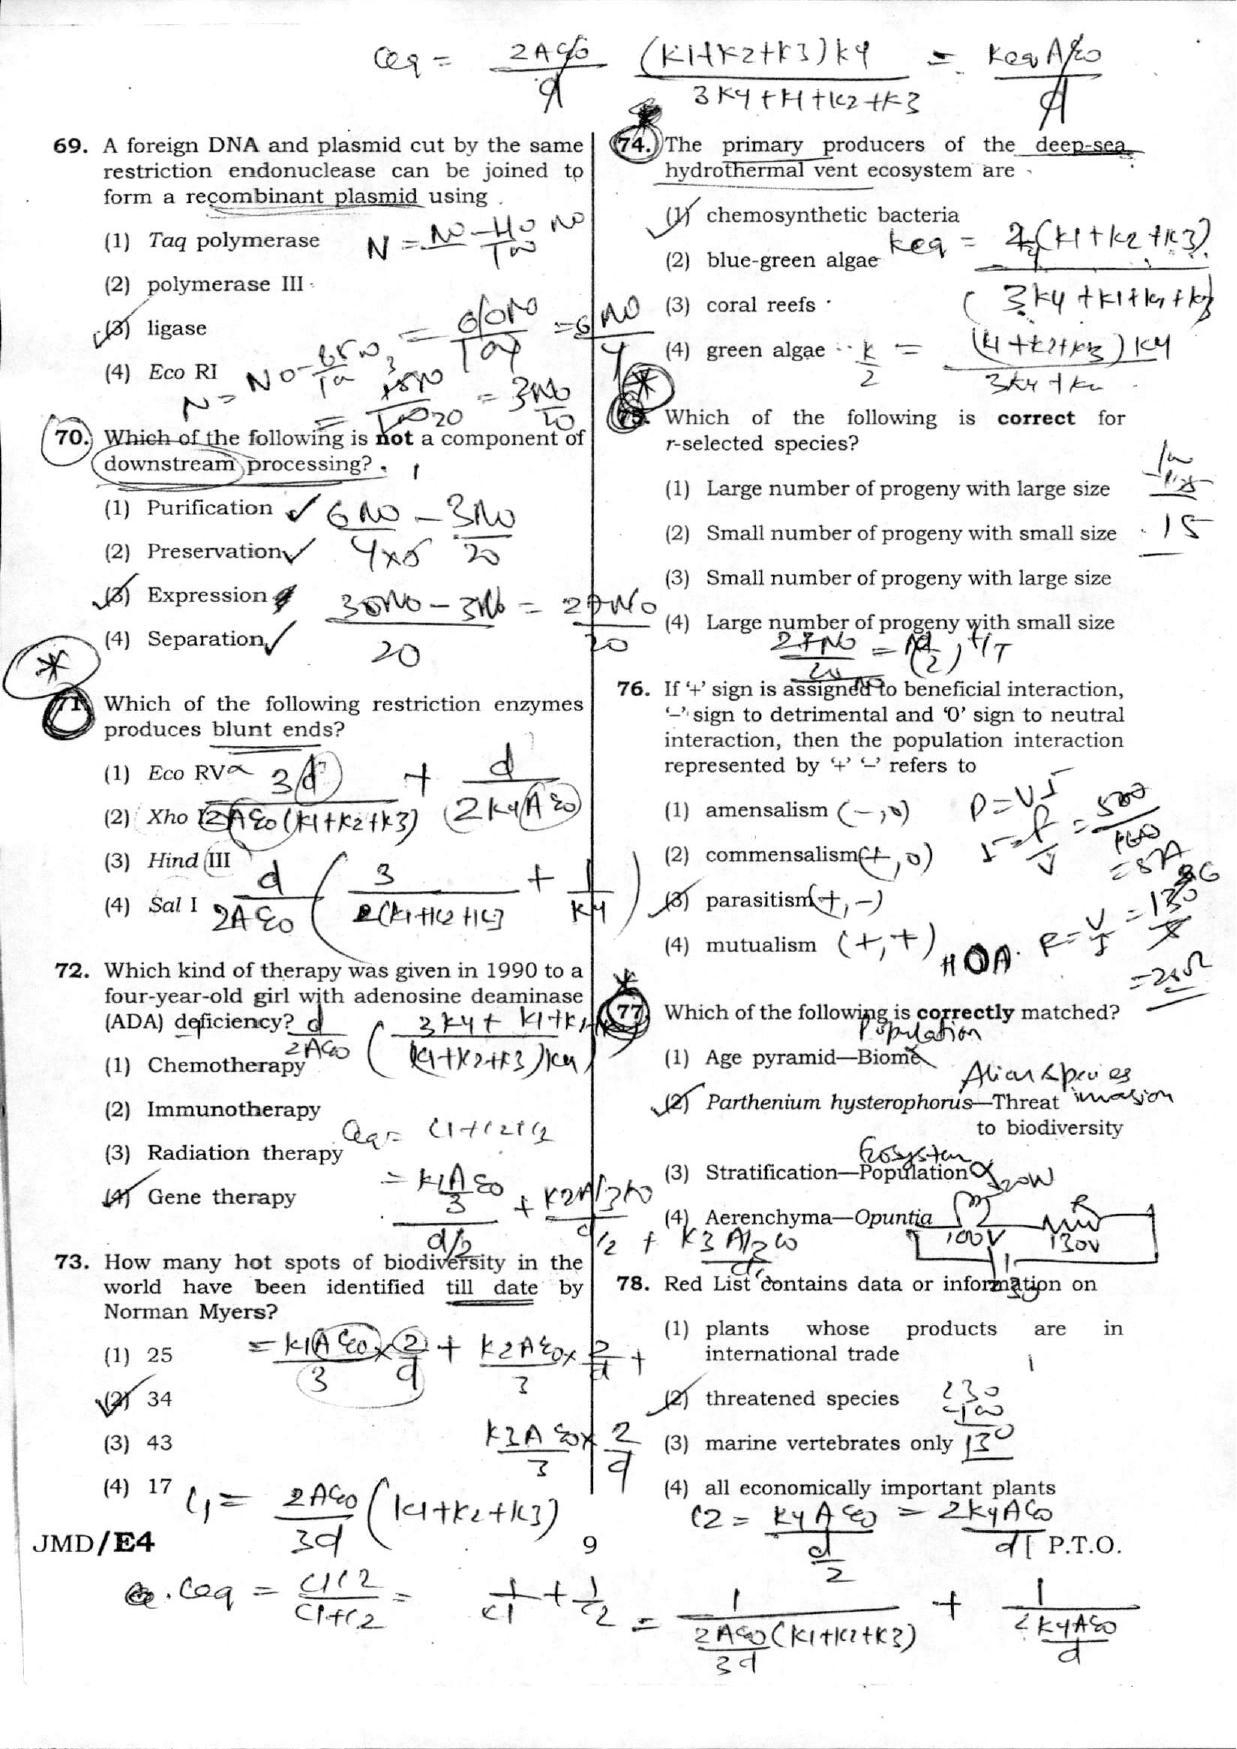 Ceq = 2Aε0/d (k1+k2+k3)k4 / 3k4+k1+k2+k3 = keq Aε0/d
69. A foreign DNA and plasmid cut by the same
restriction endonuclease can be joined to
form a recombinant plasmid using
(1) Taq polymerase
(2) polymerase III
(3) ligase
(4) Eco RI
70. Which of the following is not a component of
downstream processing?
(1) Purification
(2) Preservation
(3) Expression
(4) Separation
6N0/4×5 – 3N0/20
30N0 – 3N0 / 20 = 27N0/20
71. Which of the following restriction enzymes
produces blunt ends?
(1) Eco RV
(2) Xho I
(3) Hind III
(4) Sal I
3d / 2Aε0(k1+k2+k3) + d / 2k4Aε0
d/2Aε0 ( 3 / (k1+k2+k3) + 1/k4 )
72. Which kind of therapy was given in 1990 to a
four-year-old girl with adenosine deaminase
(ADA) deficiency?
(1) Chemotherapy
(2) Immunotherapy
(3) Radiation therapy
(4) Gene therapy
73. How many hot spots of biodiversity in the
world have been identified till date by
Norman Myers?
(1) 25
(2) 34
(3) 43
(4) 17
= k1Aε0/3 × 2/d + k2Aε0/3 × 2/d +
k3Aε0/3 × 2/d
C1 = 2Aε0/3d (k1+k2+k3)
74. The primary producers of the deep-sea
hydrothermal vent ecosystem are
(1) chemosynthetic bacteria
(2) blue-green algae
(3) coral reefs
(4) green algae
75. Which of the following is correct for
r-selected species?
(1) Large number of progeny with large size
(2) Small number of progeny with small size
(3) Small number of progeny with large size
(4) Large number of progeny with small size
15
76. If ‘+’ sign is assigned to beneficial interaction,
‘–’ sign to detrimental and ‘0’ sign to neutral
interaction, then the population interaction
represented by ‘+’ ‘–’ refers to
(1) amensalism (–, 0)
(2) commensalism (+, 0)
(3) parasitism (+, –)
(4) mutualism (+, +)
P = VI
77. Which of the following is correctly matched?
Population
(1) Age pyramid—Biome
Alien species
invasion
(2) Parthenium hysterophorus—Threat
to biodiversity
Ecosystem
(3) Stratification—Population
(4) Aerenchyma—Opuntia
R
100V 130V
78. Red List contains data or information on
(1) plants whose products are in
international trade
(2) threatened species
(3) marine vertebrates only
(4) all economically important plants
230
100
130
C2 = k4Aε0 / d/2 = 2k4Aε0/d
JMD/E4
9
P.T.O.
Ceq = C1C2/C1+C2 = 1/C1 + 1/C2 = 1 / 2Aε0/3d (k1+k2+k3) + 1 / 2k4Aε0/d